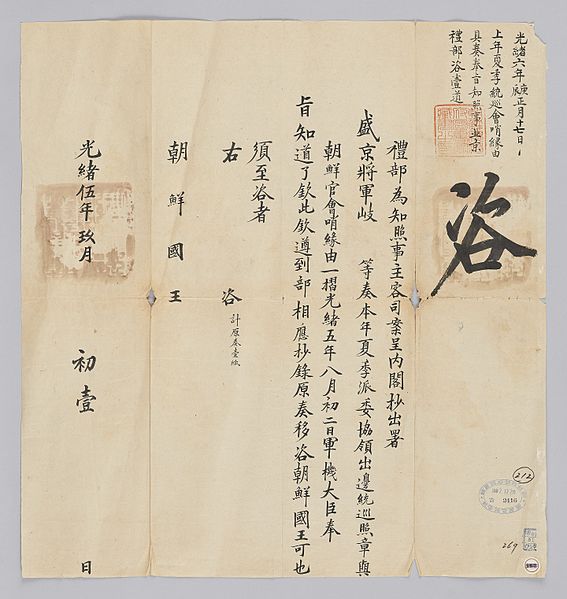 光緒六年庚辰正月十七日
上年夏季統巡會哨緣由
具奏奉旨知照事北京
禮部咨壹道
咨
禮部為知照事主客司案呈內閣抄出署
盛京將軍岐　等奏本年夏季派委協領出邊統巡照章與
朝鮮官會哨緣由一摺光緒五年八月初二日軍機大臣奉
旨知道了欽此欽遵到部相應抄錄原奏移咨朝鮮國王可也
須至咨者
右　咨　計原奏壹紙
朝鮮國王
光緒伍年玖月　初壹　日
212
2416
269